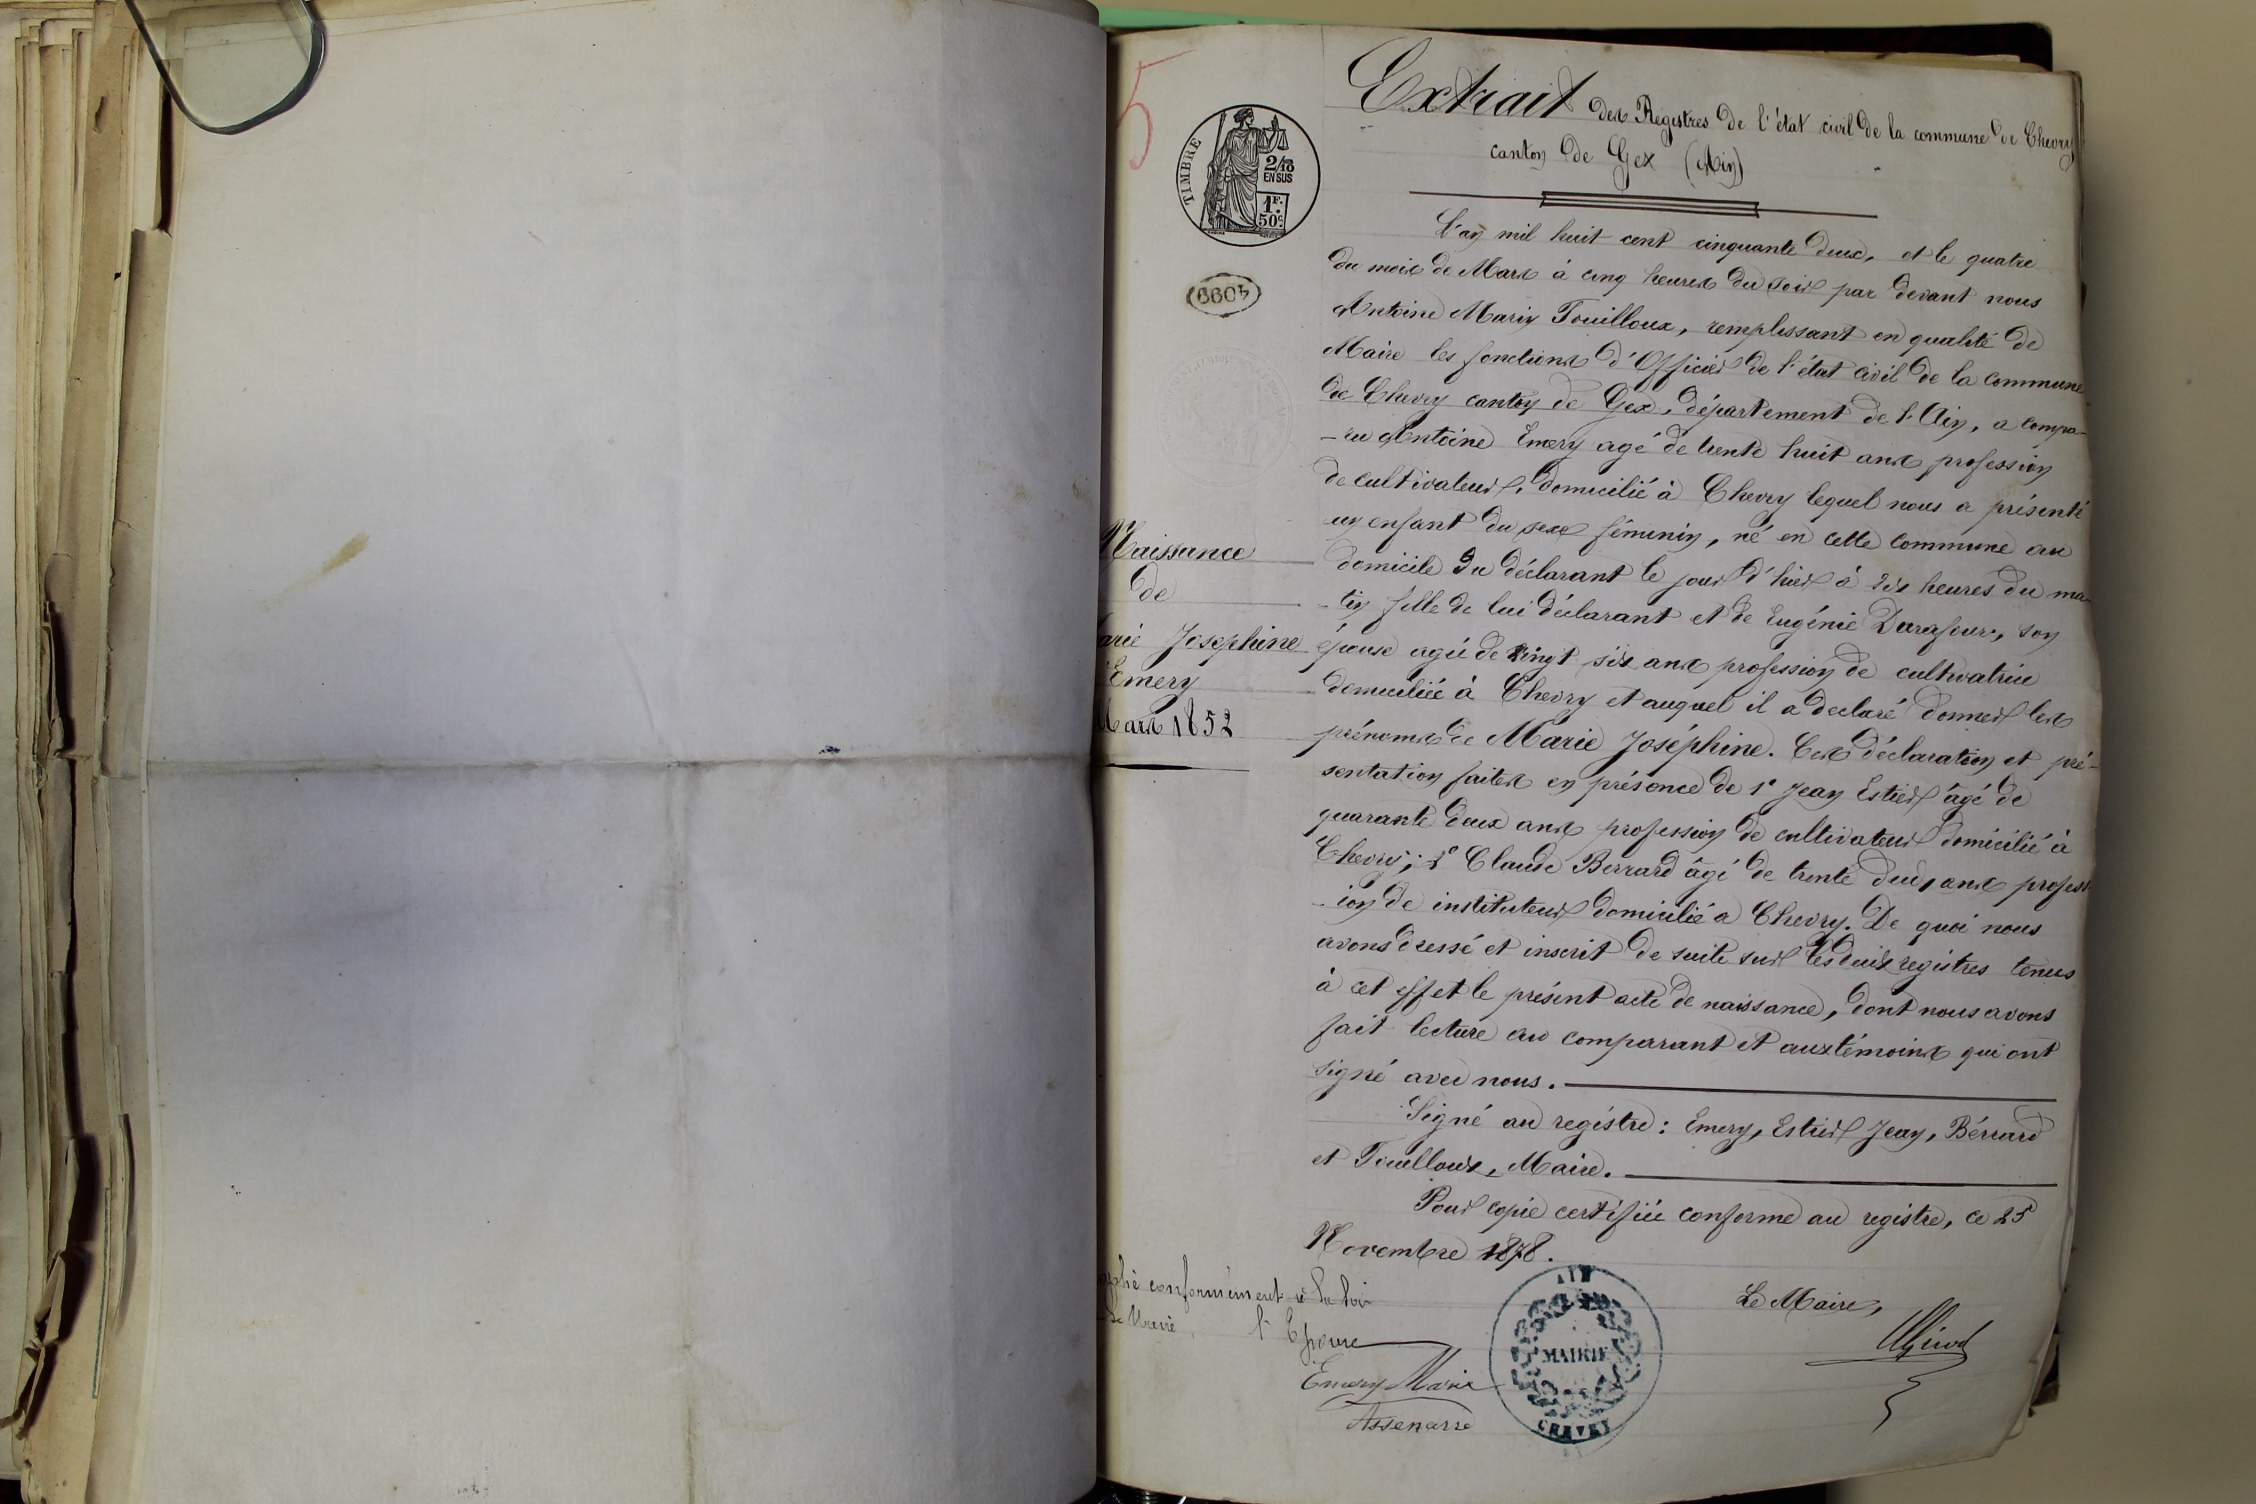 5
Extrait des Registres de l'état civil de la commune de Chevry
canton de Gex (Ain)
TIMBRE
2/10
EN SUS
1F.
50c.
4099
L'an mil huit cent cinquante deux, et le quatre
du mois de Mars à cinq heures du soir par devant nous
Antoine Marin Fouilloux, remplissant en qualité de
Maire les fonctions d'Officier de l'état civil de la commune
de Chevry canton de Gex, département de l'Ain, a compa-
-ru Antoine Emery agé de trente huit ans profession
de cultivateur, domicilié à Chevry lequel nous a présenté
un enfant du sexe féminin, né en cette commune au
domicile du déclarant le jour d'hier à dix heures du ma-
-tin fille de lui déclarant et de Eugénie Darafour, son
épouse agée de vingt six ans profession de cultivatrice
domiciliée à Chevry et auquel il a declaré donner les
prénoms de Marie Joséphine. Ces déclaration et pré-
sentation faites en présence de 1° Jean Estier âgé de
quarante deux ans profession de cultivateur domicilié à
Chevry; 2° Claude Berrard âgé de trente deux ans profess-
-ion de instituteur domicilié a Chevry. De quoi nous
avons dressé et inscrit de suite sur les deux registres tenus
à cet effet le présent acte de naissance, dont nous avons
fait lecture au comparant et aux témoins qui ont
signé avec nous.
Signé au registre: Emery, Estier Jean, Bérrard
et Fouilloux, Maire.
Pour copie certifiée conforme au registre, ce 25
Novembre 1878.
Le Maire,
Naissance
de
arie Josephine
Emery
Mars 1852
conformément à la loi
l'Epouse
Emery Marie
AIN
MAIRIE
CHEVRY